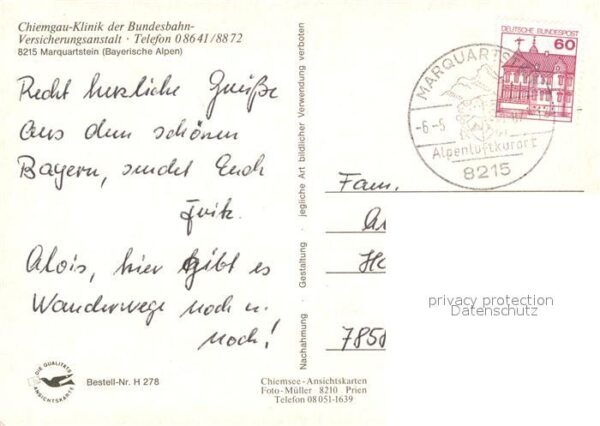 Chiemgau-Klinik der Bundesbahn-
Versicherungsanstalt · Telefon 0 86 41/88 72
8215 Marquartstein (Bayerische Alpen)
Recht herzliche Grüße
aus dem schönen
Bayern, sendet Euch
Fritz.
Alois, hier gibt es
Wanderwege noch u.
noch!
DIE QUALITÄTS
ANSICHTSKARTE
Bestell-Nr. H 278
Nachahmung · Gestaltung · jegliche Art bildlicher Verwendung verboten
Chiemsee-Ansichtskarten
Foto-Müller 8210 Prien
Telefon 0 80 51-1639
DEUTSCHE BUNDESPOST
60
MARQUARTS
-6.-5
Alpenluftkurort
8215
Fam.
He
7850
privacy protection
Datenschutz